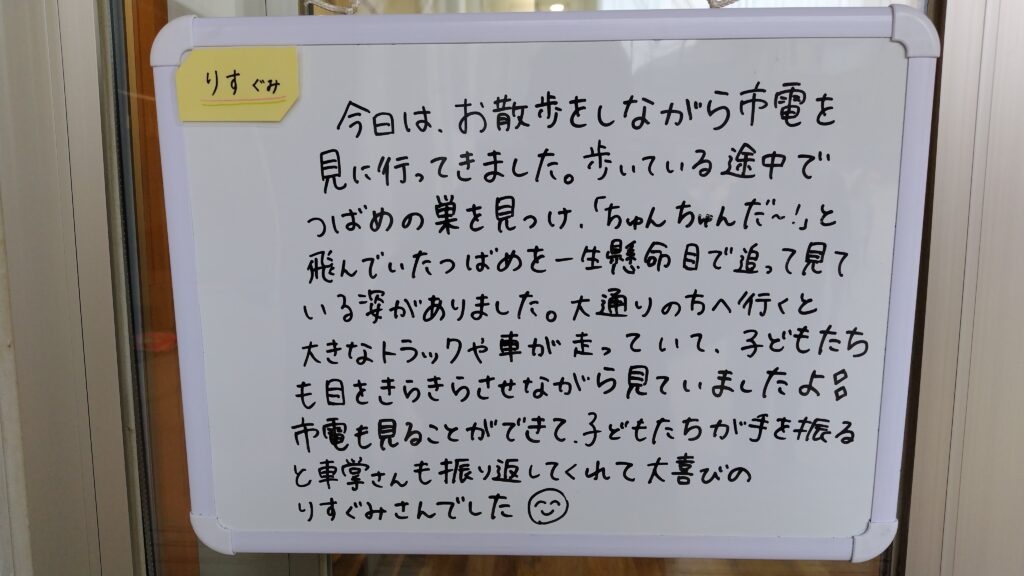 りすぐみ
今日は、お散歩をしながら市電を
見に行ってきました。歩いている途中で
つばめの巣を見つけ、「ちゅんちゅんだ〜!」と
飛んでいたつばめを一生懸命目で追って見て
いる姿がありました。大通りの方へ行くと
大きなトラックや車が走っていて、子どもたち
も目をきらきらさせながら見ていましたよ!!
市電も見ることができて、子どもたちが手を振る
と車掌さんも振り返してくれて大喜びの
りすぐみさんでした